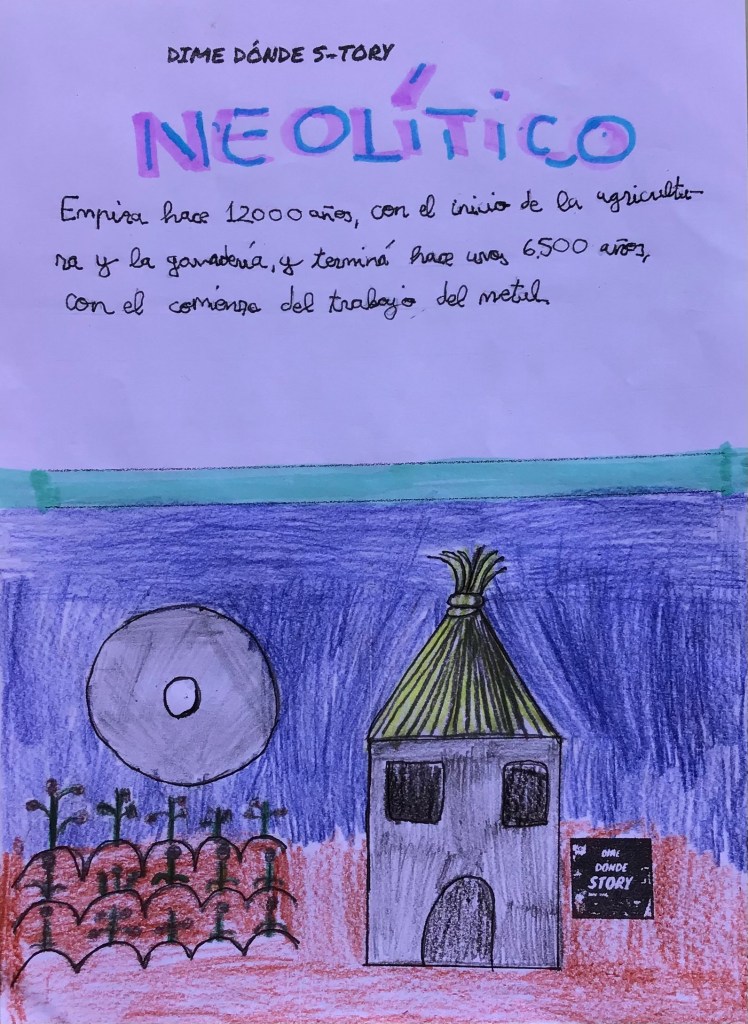 DIME DÓNDE S-TORY
NEOLÍTICO
Empiza hace 12000 años, con el inicio de la agricultu-
ra y la ganadería, y terminá hace unos 6.500 años,
con el comienzo del trabajo del metal.
DIME
DONDE
STORY